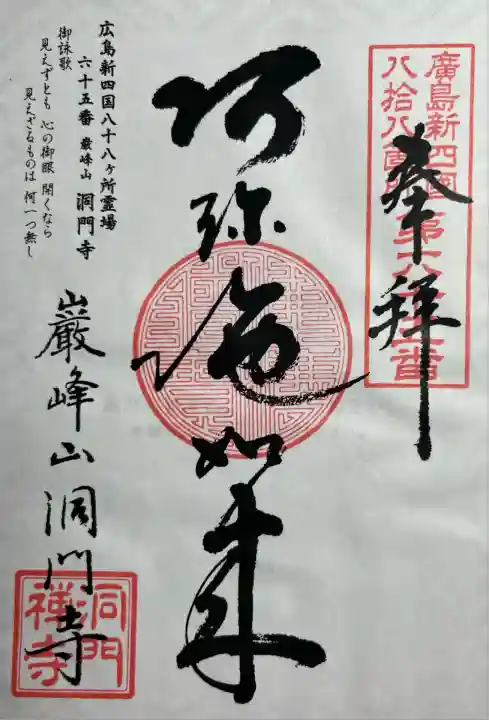 奉拝
廣島新四國
八拾八
第六十五番
阿弥陀如来
広島新四国八十八ヶ所霊場
六十五番 巌峰山 洞門寺
御詠歌
見えずとも 心の御眼 開くなら
見えざるものは 何一つ無し
巌峰山洞門寺
洞門
禅寺